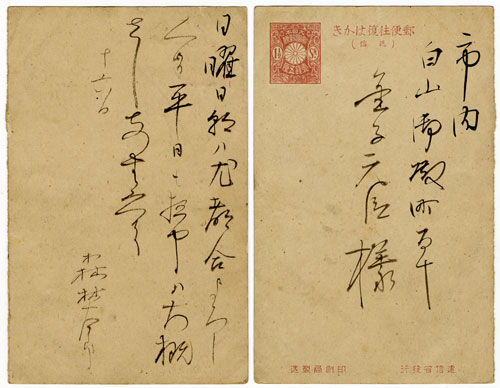 郵便往復はかき
(返信)
市内
白山御殿町百十
金子元臣様
逓信省発行
印刷局製造
日曜日朝ハ尤都合よろし
平日ニ ハ大概
さし支
十六日
森林太郎